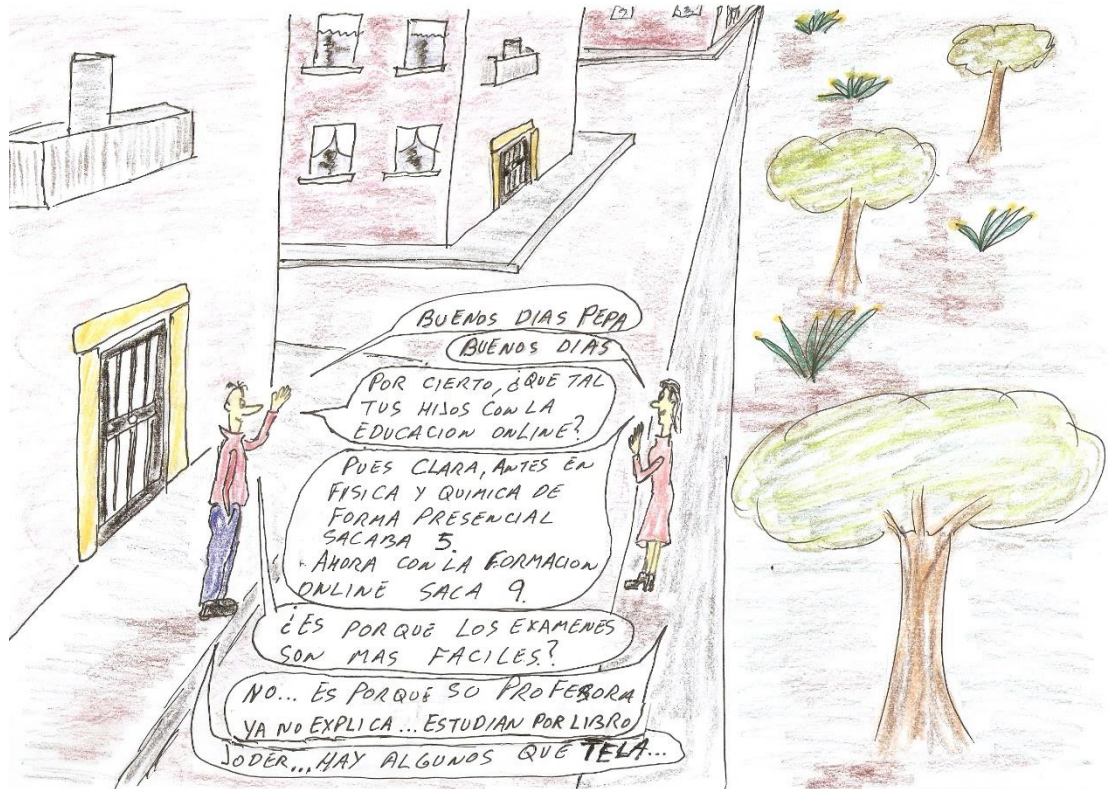 BUENOS DIAS PEPA
BUENOS DIAS
POR CIERTO, ¿QUE TAL
TUS HIJOS CON LA
EDUCACION ONLINE?
PUES CLARA, ANTES EN
FISICA Y QUIMICA DE
FORMA PRESENCIAL
SACABA 5.
AHORA CON LA FORMACION
ONLINE SACA 9.
¿ES POR QUE LOS EXAMENES
SON MAS FACILES?
NO... ES PORQUE SU PROFESORA
YA NO EXPLICA... ESTUDIAN POR LIBRO
JODER... HAY ALGUNOS QUE TELA...